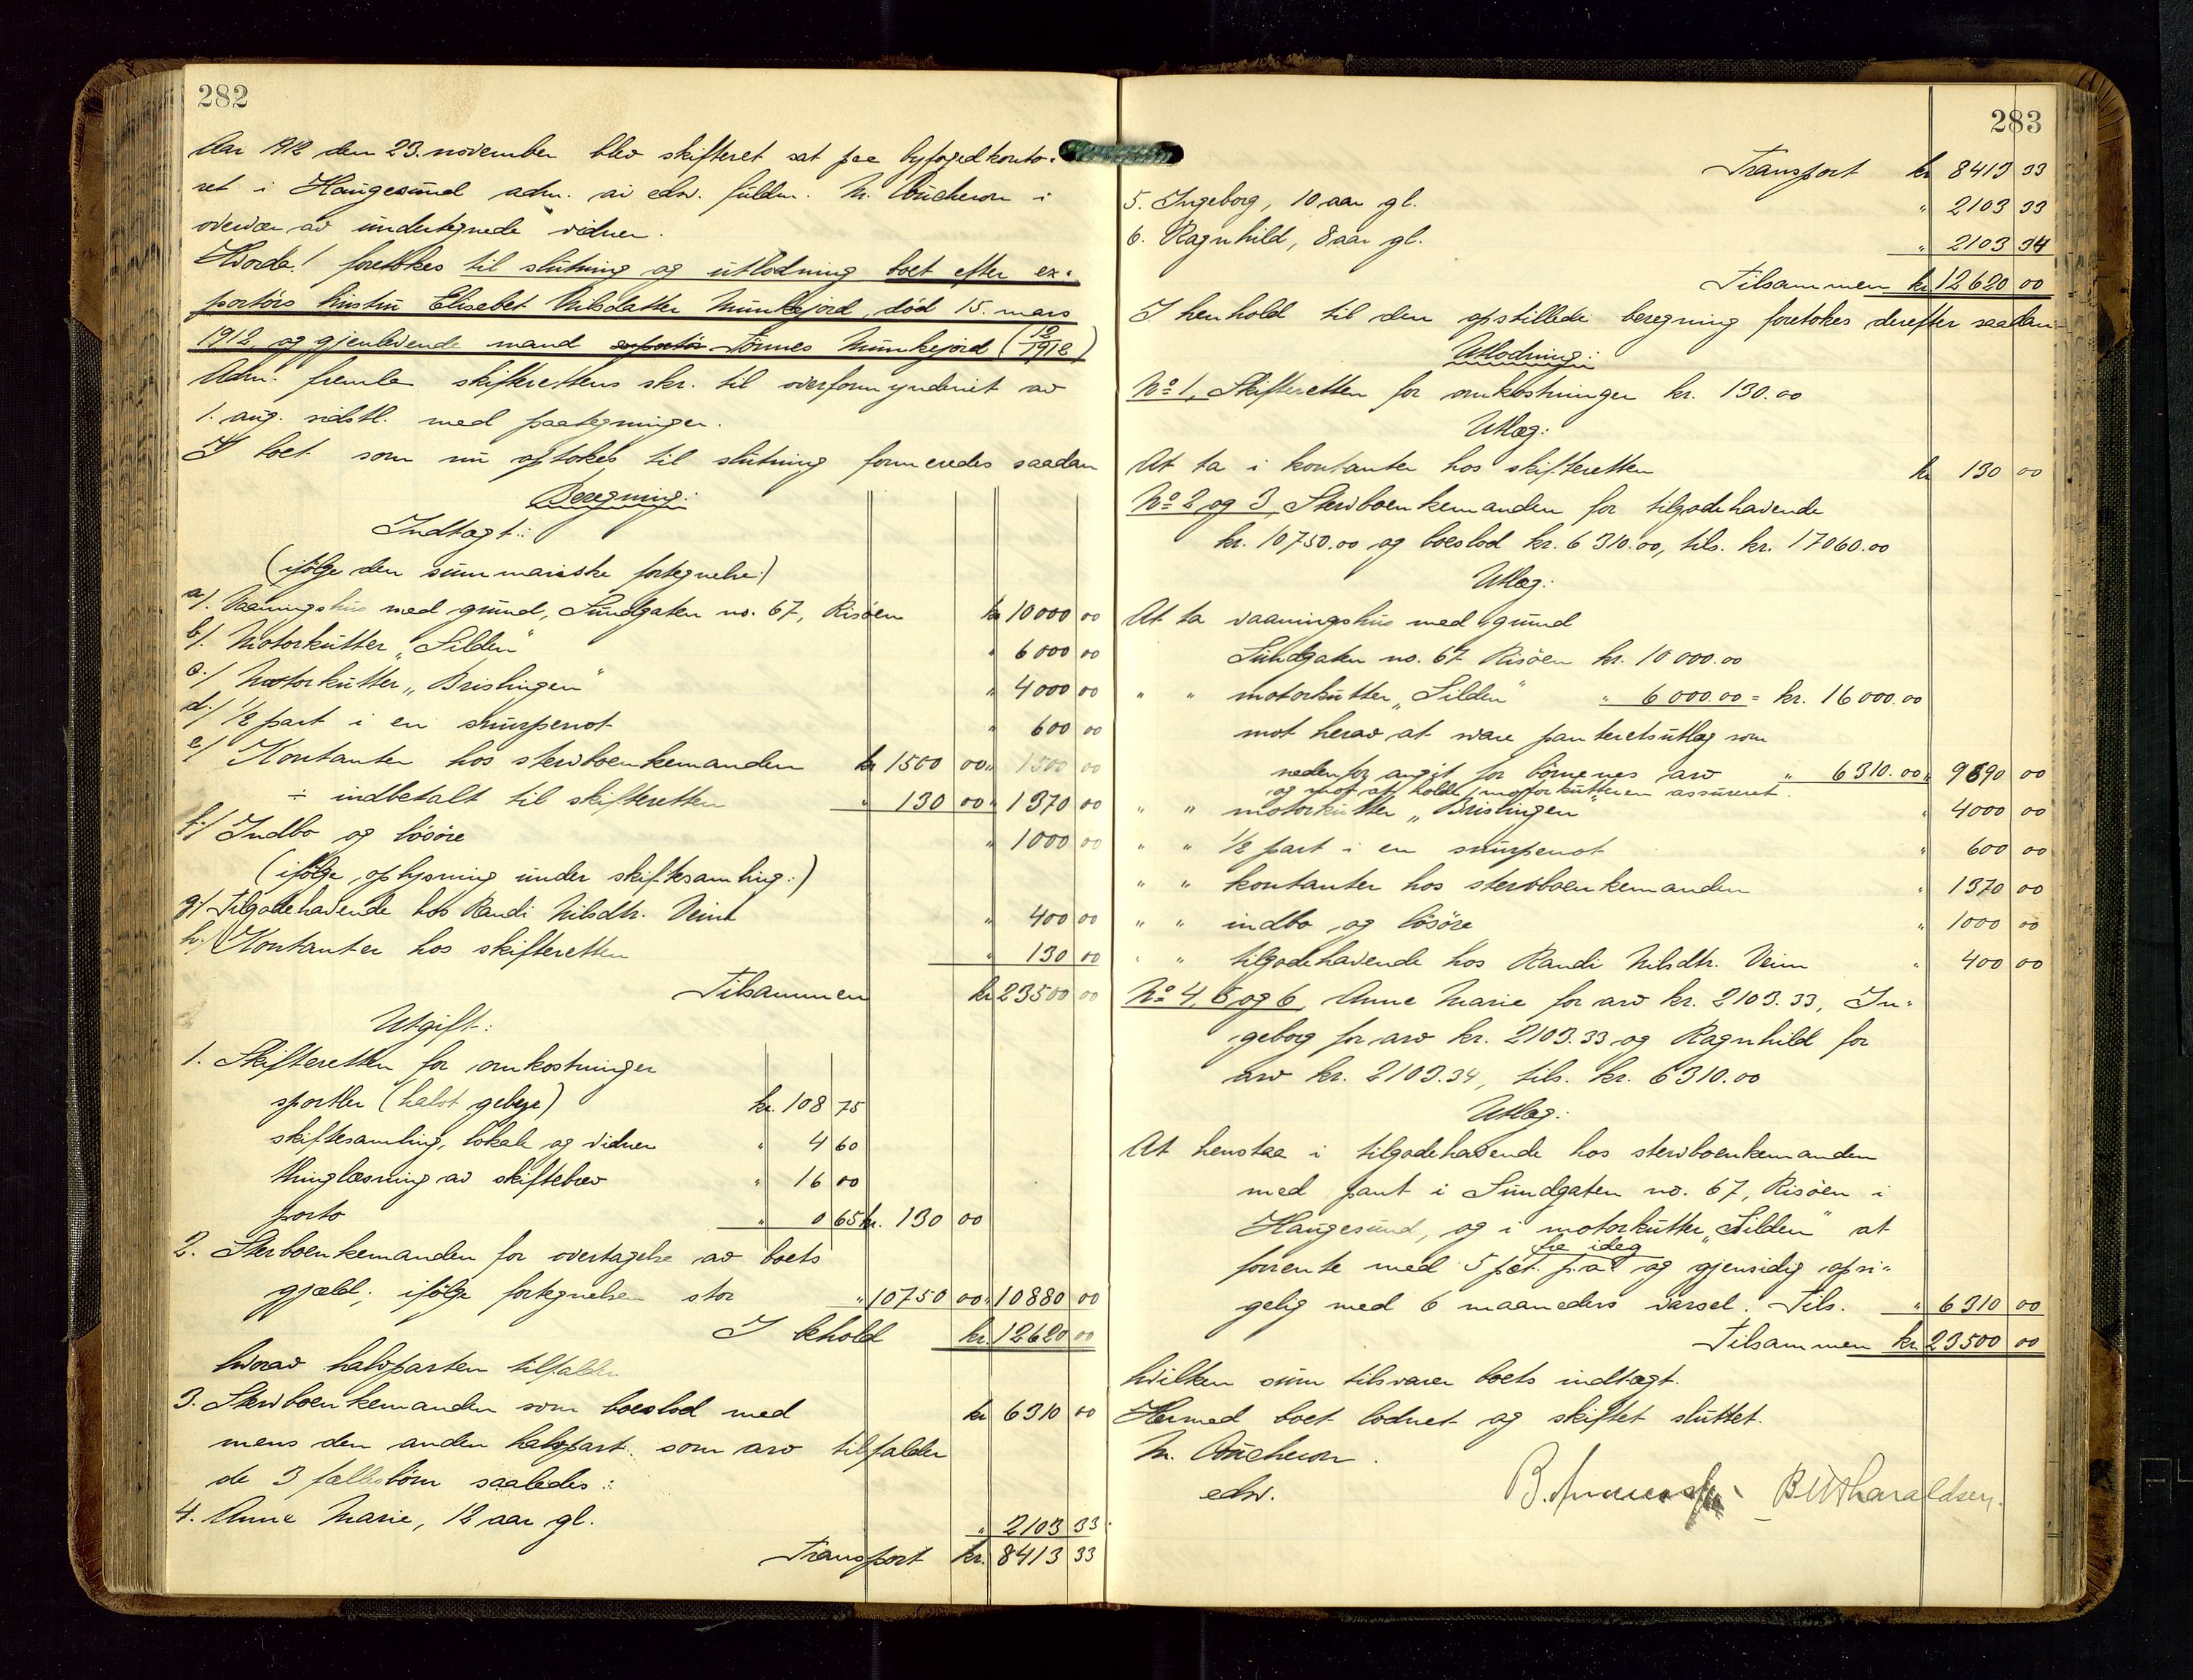 282
Aar 1912 den 23. november blev skifteret sat paa byfogedkonto-
ret i Haugesund adm. av edsv. fuldm. M. Coucheron i
overvær av undertegnede vidner.
Hvorda! foretokes til slutning og utlodning boet efter ex-
portörs hustru Elisebet Nilsdatter Munkejord, död 15. mars
1912, og gjenlevende mand exportör Tönnes Munkejord (19/1912)
Adm. fremla skifterettens skr. til overformynderiet av
1. aug. sidstl. med paategninger.
I boet som nu optokes til slutning formeredes saadan
Beregning:
Indtægt:
(ifölge den summariske fortegnelse:)
a/. Vaaningshus med grund, Sundgaten no. 67, Risöen kr 10000 00
b/. Motorkutter "Silden" " 6000 00
c./ Motorkutter "Brislingen" " 4000 00
d./ 1/2 part i en snurpenot " 600 00
e/ Kontanter hos stervboenkemanden kr 1500 00 " 1500 00
÷ indbetalt til skifteretten " 130 00 " 1370 00
f./ Indbo og lösöre " 1000 00
(ifölge oplysning under skiftesamling:)
g./ Tilgodehavende hos Randi Nilsdtr. Veim " 400 00
h./ Kontanter hos skifteretten " 130 00
Tilsammen kr 23500 00
Utgift:
1. Skifteretten for omkostninger
sportler (halvt gebyr) kr. 108 75
skiftesamling, lokale og vidner " 4 60
thinglæsning av skiftebrev " 16 00
porto " 0 65 kr. 130 00
2. Sterboenkemanden for overtagelse av boets
gjæld; ifölge fortegnelsen stor " 10750 00 " 10880 00
I behold kr. 12620 00
hvorav halvparten tilfalder
3. Stervboenkemanden som boeslod med kr 6310 00
mens den anden halvpart som arv tilfalder
de 3 fællesbörn saaledes:
4. Anne Marie, 12 aar gl. " 2103 33
Transport kr. 8413 33
283
Transport kr 8413 33
5. Ingeborg, 10 aar gl. " 2103 33
6. Ragnhild, 8 aar gl. " 2103 34
Tilsammen kr 12620 00
I henhold til den opstillede beregning foretokes derefter saadan
Utlodning:
No 1, Skifteretten for omkostninger kr. 130.00
Utlæg:
At ta i kontanter hos skifteretten kr 130 00
No 2 og 3, Stervboenkemanden for tilgodehavende
kr. 10750.00 og boeslod kr. 6310.00, tils. kr. 17060.00
Utlæg:
At ta vaaningshus med grund
Sundgaten no. 67 Risöen kr. 10000.00
" " motorkutter "Silden" " 6000.00 = kr. 16000.00
mot herav at svare panteretsutlæg som
nedenfor angit for börnenes arv " 6310.00 " 9690 00
og mot at holde motorkutteren assureret.
" " motorkutter "Brislingen" " 4000 00
" " 1/2 part i en snurpenot " 600 00
" " kontanter hos stervboenkemanden " 1370 00
" " indbo og lösöre " 1000 00
" " tilgodehavende hos Randi Nilsdtr. Veim " 400 00
No 4, 5 og 6, Anne Marie for arv kr. 2103.33, In-
geborg for arv kr. 2103.33 og Ragnhild for
arv kr. 2103.34, tils. kr. 6310.00
Utlæg:
At henstaa i tilgodehavende hos stervboenkemanden
med pant i Sundgaten no. 67, Risöen i
Haugesund, og i motorkutter "Silden" at
fra idag
forrente med 5 pct. p.a. og gjensidig opsi-
gelig med 6 maaneders varsel. Tils. " 6310 00
Tilsammen kr. 23500 00
hvilken sum tilsvarer boets indtægt.
Hermed boet lodnet og skiftet sluttet.
M. Coucheron.
edsv.